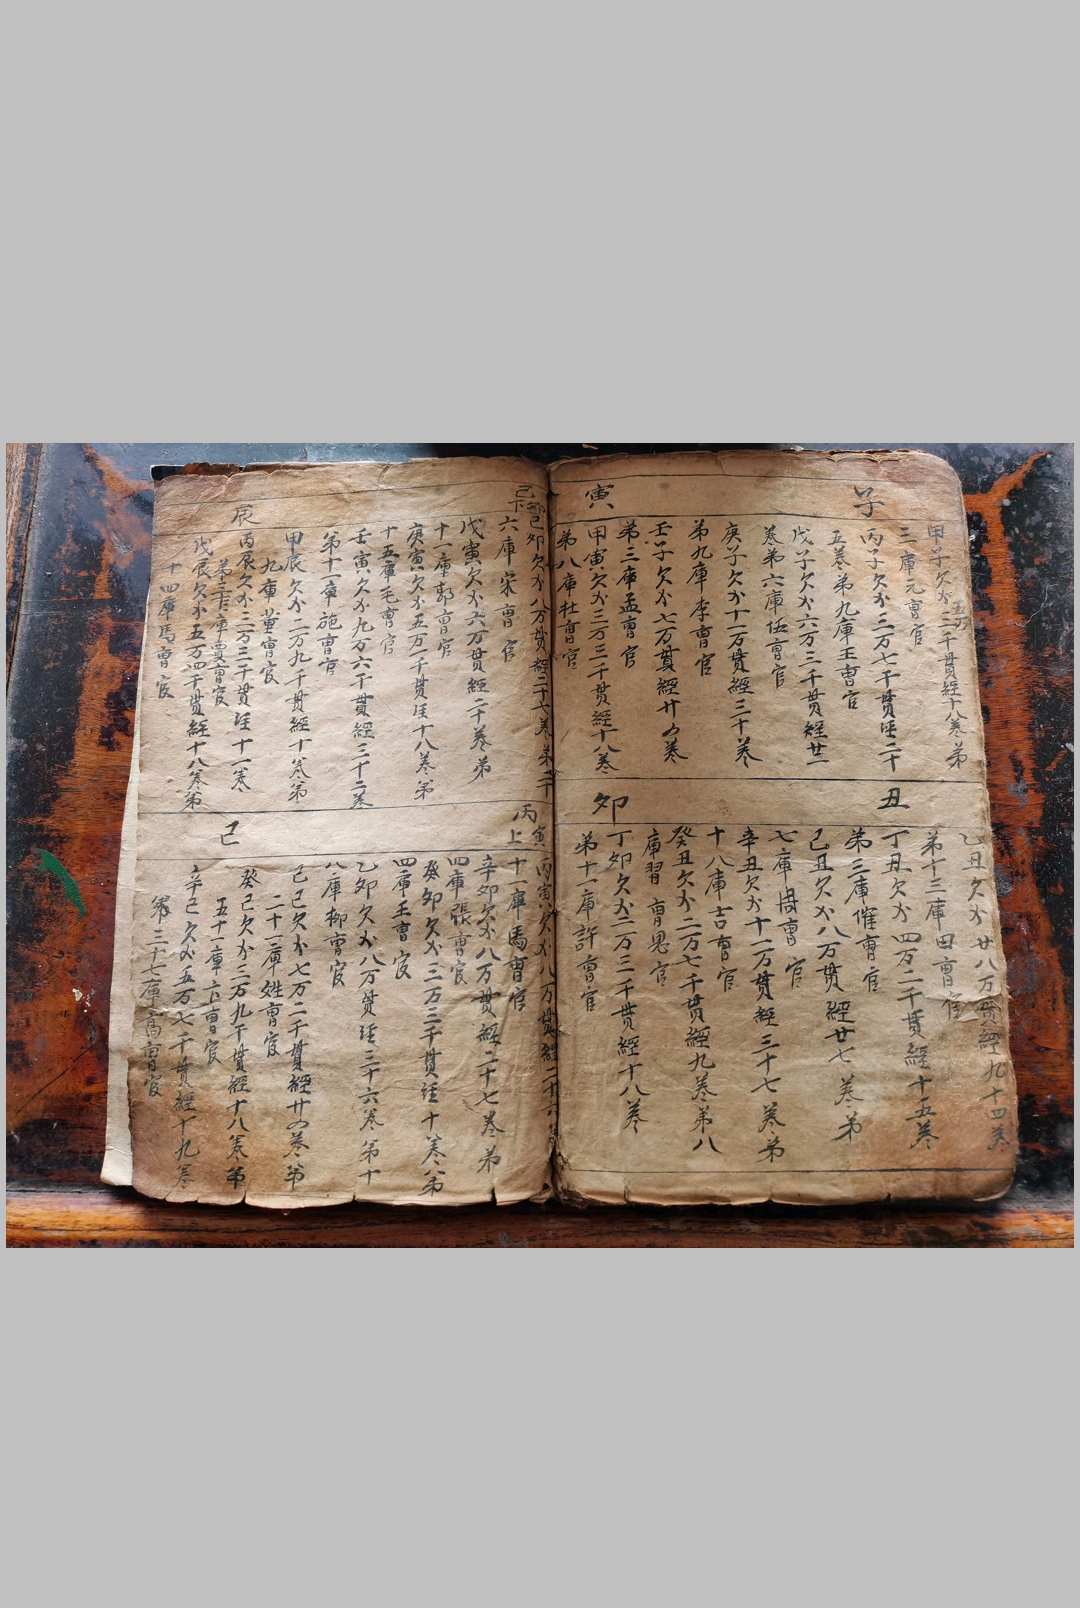 子
甲子欠 五万三千貫經十八卷第
三庫元曹官
丙子欠 三万七千貫経二十
五卷第九庫王曹官
戊子欠 六万三千貫經廿二
卷第六庫伍曹官
庚子欠 十一万貫經三十卷
第九庫李曹官
壬子欠 七万貫經廿 卷
第三庫孟曹官
寅
甲寅欠 三万三千貫經十八卷
第八庫杜曹官
丑
乙丑欠 廿八万 經九十四卷
第十三庫田曹官
丁丑欠 四万二千貫經十五卷
第三庫催曹官
己丑欠 八万貫經廿七卷第
七庫周曹官
辛丑欠 十一万貫經三十七卷第
十八庫吉曹官
癸丑欠 二万七千貫經九卷第八
庫習曹 官
卯
丁卯欠 二万三千貫經十八卷
第十一庫許曹官
己下
己卯欠 八万貫經二十六卷第二十
六庫宋曹官
戊寅欠 六万貫經二十卷第
十一庫郭曹官
庚寅欠 五万一千貫经十八卷第
十五庫毛曹官
壬寅欠 九万六千貫經三十二卷
第十一庫施曹官
辰
甲辰欠 二万九千貫經十卷第
九庫董曹官
丙辰欠 三万三千貫经十一卷
第三十 庫賈曹官
戊辰欠 五万四千貫經十八卷第
十四庫馬曹官
丙寅上
丙寅欠 八万貫經二十六卷
十一庫馬曹官
辛卯欠 八万貫經二十七卷第
四庫張曹官
癸卯欠 三万三千貫经十卷第
四庫王曹官
乙卯欠 八万貫经三十六卷第十
八庫柳曹官
己
己己欠 七万二千貫經廿 卷第
二十二庫姓曹官
癸己欠 三万九千貫經十八卷第
五十庫卞曹官
辛己欠 五万七千貫經十九卷
第三十七庫高曹官